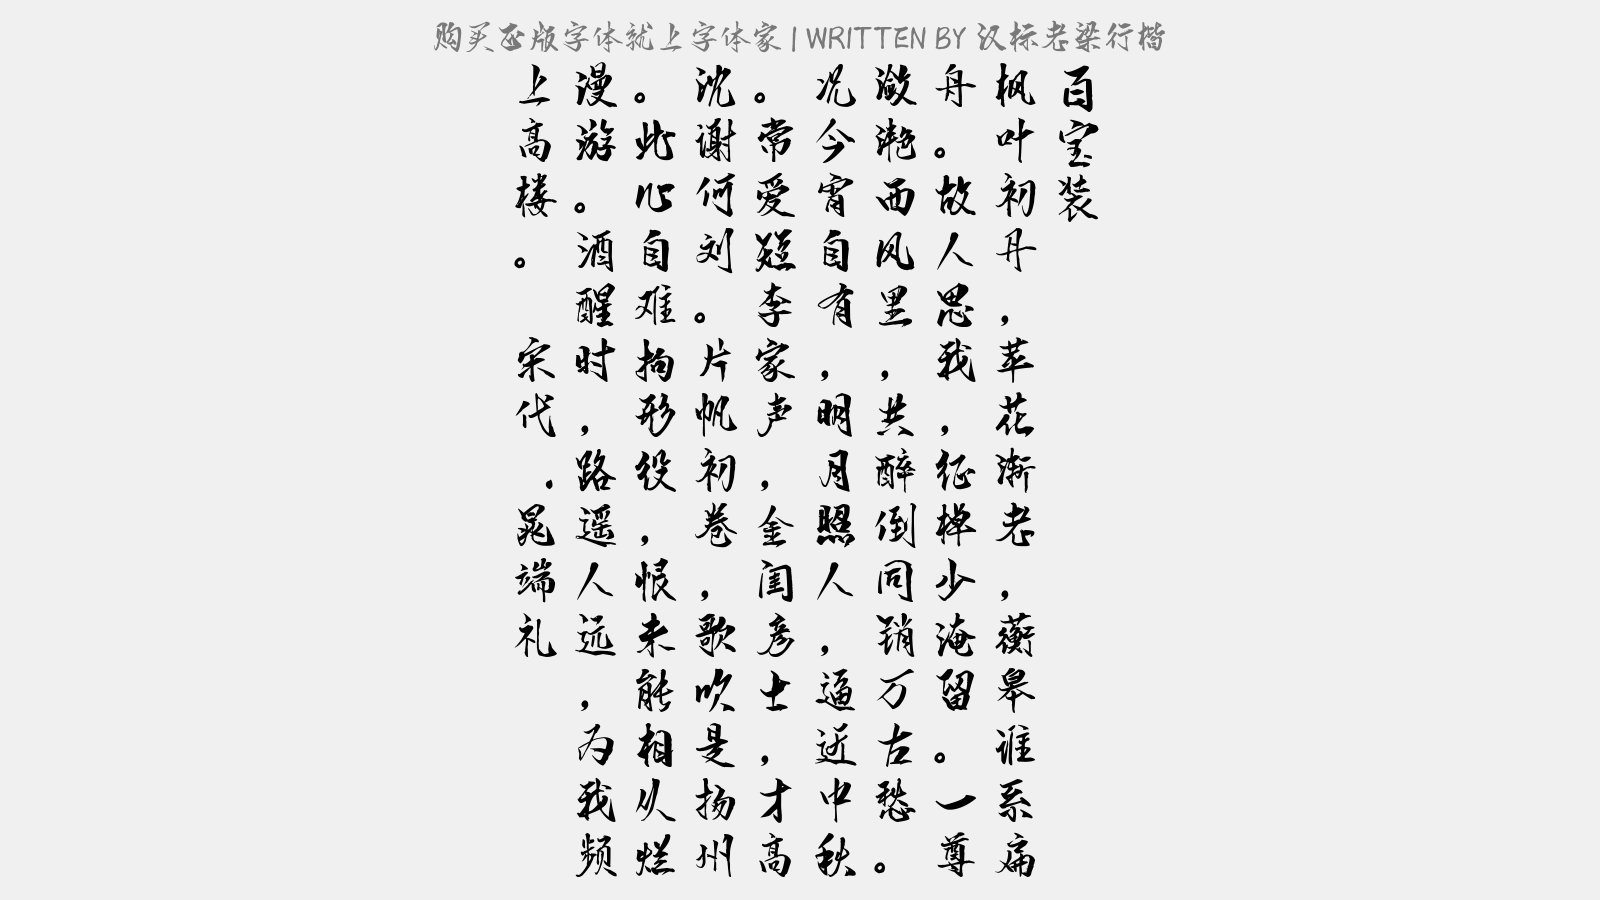 购买正版字体就上字体家 | WRITTEN BY 汉标老梁行楷
百宝装
枫叶初丹，苹花渐老，蘅皋谁系扁
舟。故人思我，征棹少淹留。一尊
潋滟西风里，共醉倒同销万古愁。
况今宵自有，明月照人，逼近中秋
。常爱短李家声，金闺彦士，才高
沈谢何刘。片帆初卷，歌吹是扬州
。此心自难拘形役，恨未能相从烂
漫游。酒醒时，路遥人远，为我频
上高楼。 宋代.晁端礼